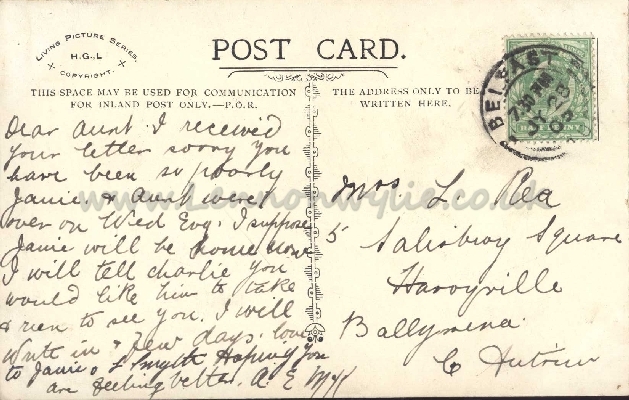 LIVING PICTURE SERIES.
H.G.L
COPYRIGHT.
POST CARD.
THIS SPACE MAY BE USED FOR COMMUNICATION
FOR INLAND POST ONLY.—P.O.R.
THE ADDRESS ONLY TO BE
WRITTEN HERE.
BELFAST
7.30 PM
JY 28
HALFPENNY
Dear Aunt I received
your letter sorry you
have been so poorly
Janie & Aunt were
over on Wed Evg. I suppose
Janie will be home now
I will tell charlie you
would like him to take
a run to see you. I will
write in a few days. love
to Janie & L Smyth Hoping you
are feeling better. A E
Mrs L Rea
5 Salisbury Square
Harryville
Ballymena
C Antrim
www.lennonwylie.co.uk